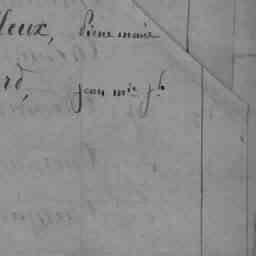 leux, Pierre marie
rd, jean mie jh